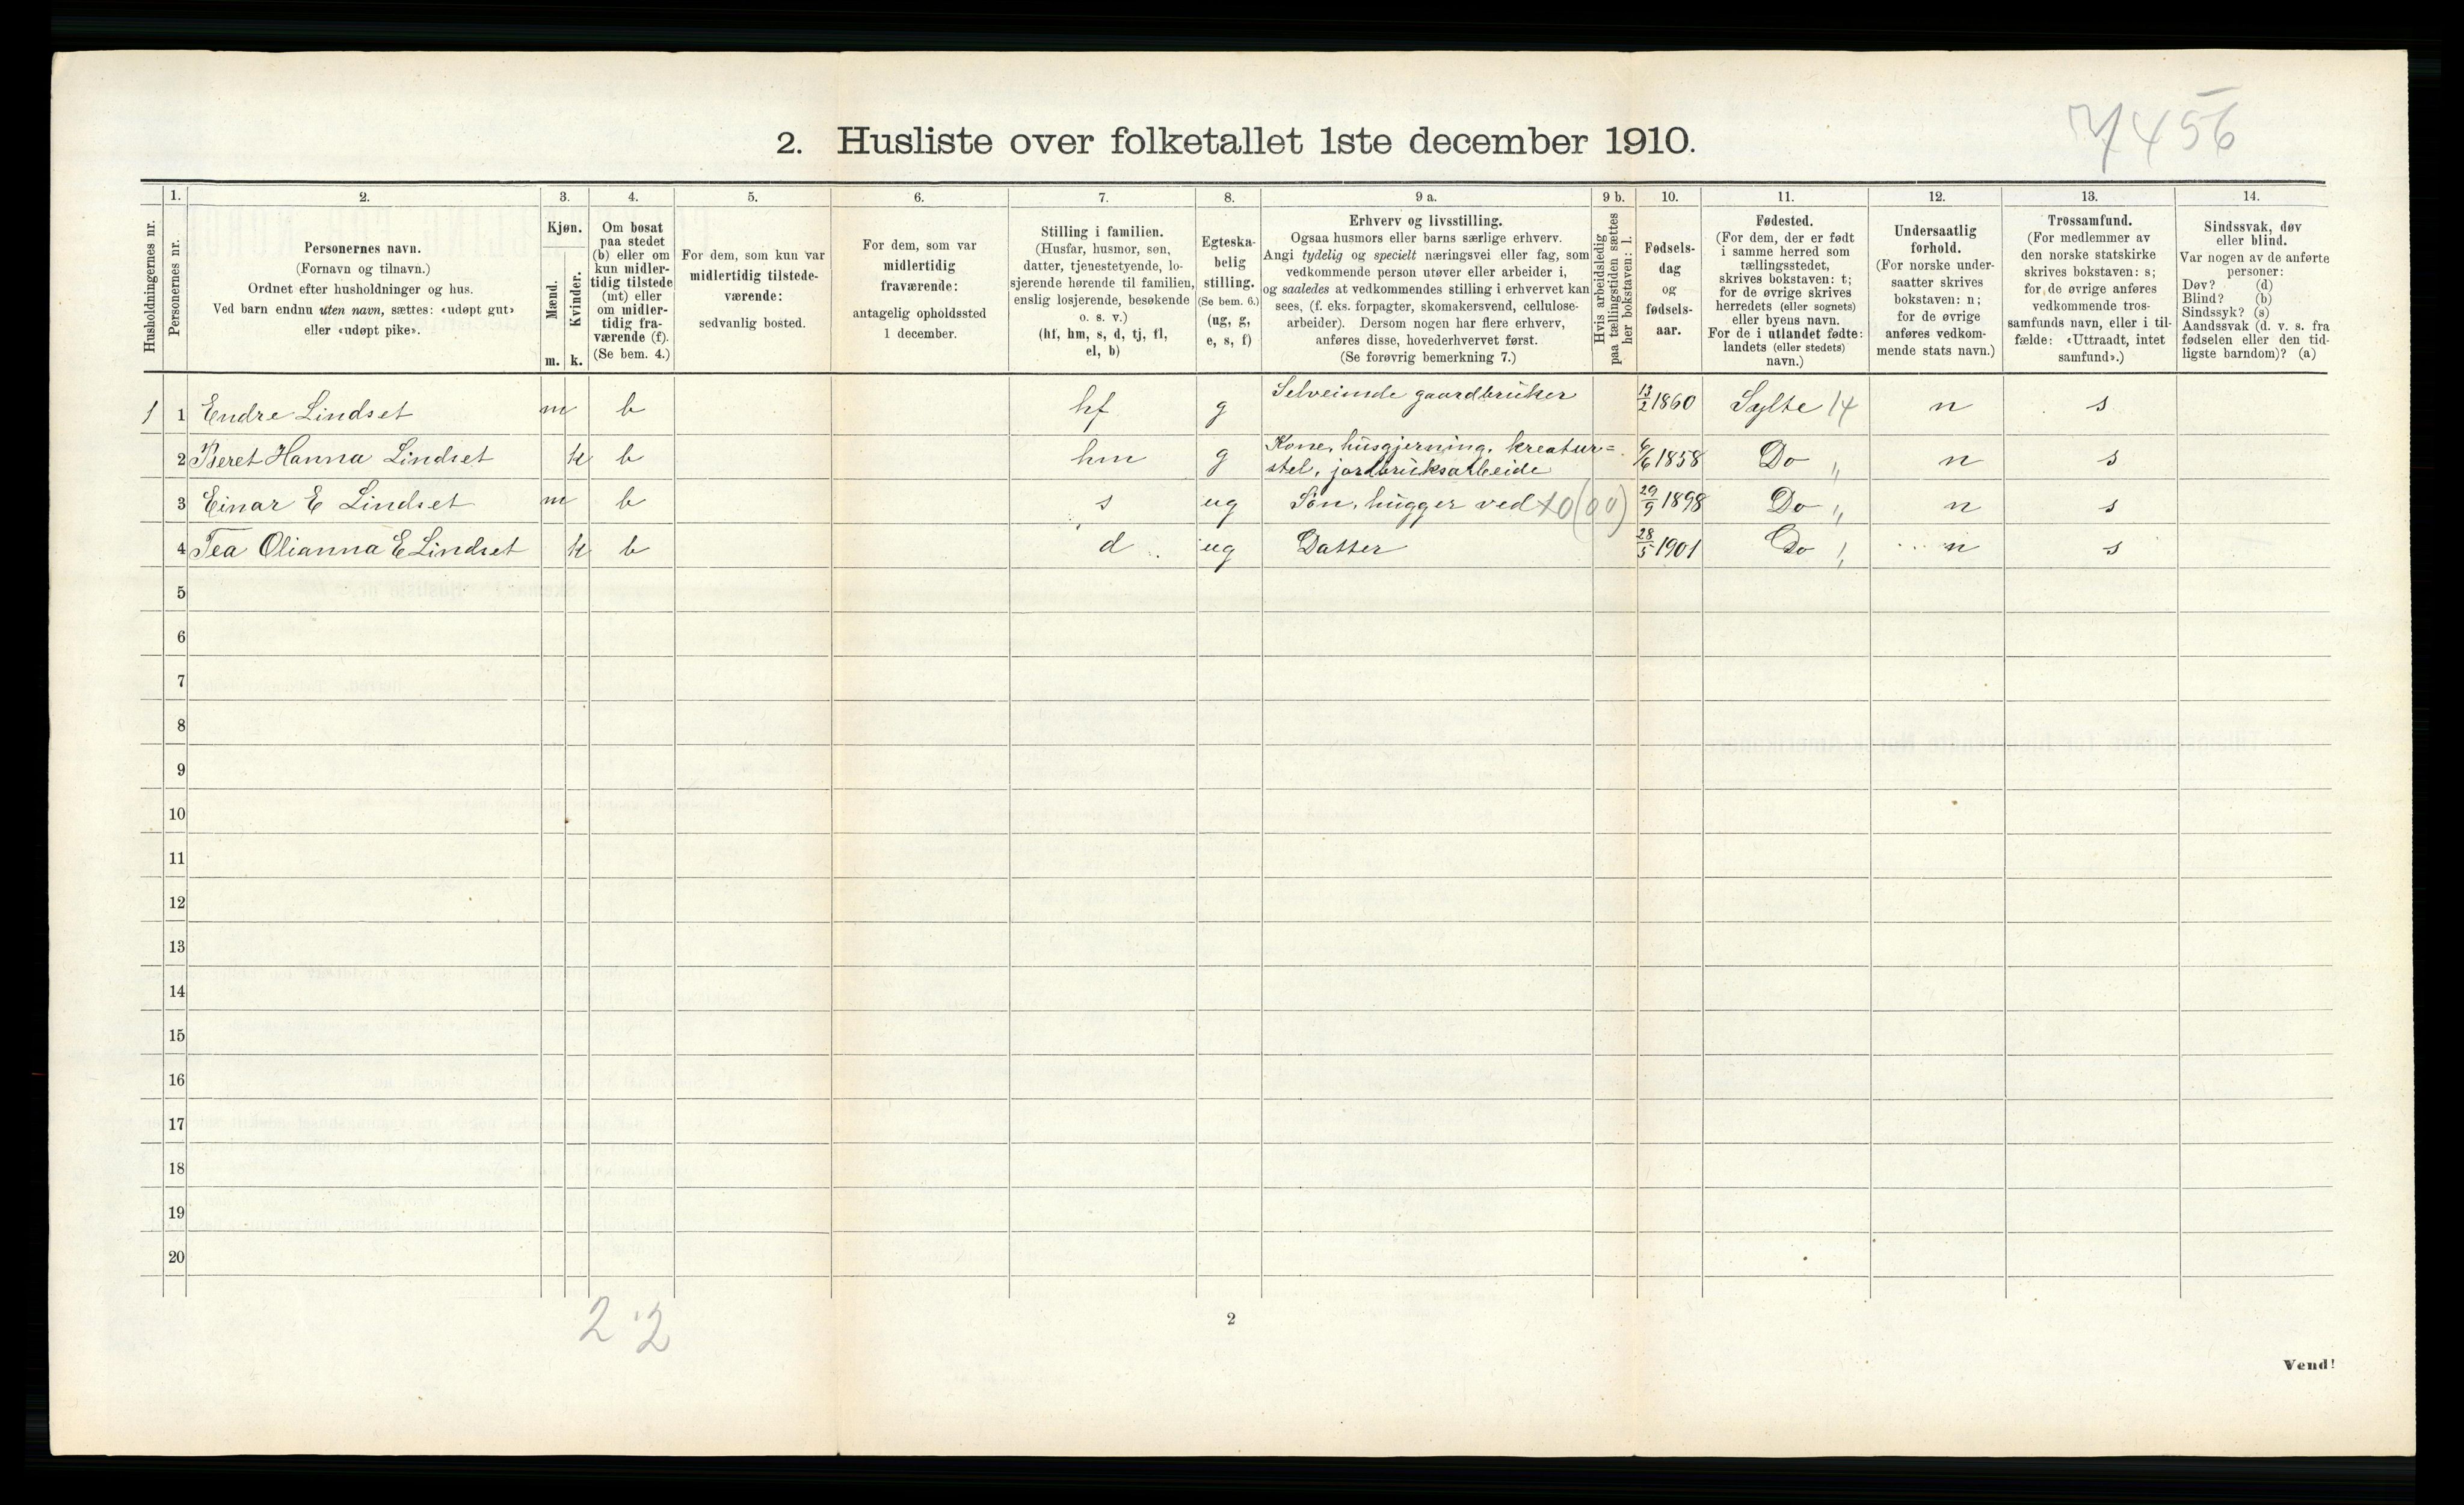 7456
2. Husliste over folketallet 1ste december 1910.
1. 2. 3. 4. 5. 6. 7. 8. 9 a. 9 b. 10. 11. 12. 13. 14.
Husholdningernes nr.
Personernes nr.
Personernes navn.
(Fornavn og tilnavn.)
Ordnet efter husholdninger og hus.
Ved barn endnu uten navn, sættes: «udøpt gut»
eller «udøpt pike».
Kjøn.
Mænd.
Kvinder.
m. k.
Om bosat
paa stedet
(b) eller om
kun midler-
tidig tilstede
(mt) eller
om midler-
tidig fra-
værende (f).
(Se bem. 4.)
For dem, som kun var
midlertidig tilstede-
værende:
sedvanlig bosted.
For dem, som var
midlertidig
fraværende:
antagelig opholdssted
1 december.
Stilling i familien.
(Husfar, husmor, søn,
datter, tjenestetyende, lo-
sjerende hørende til familien,
enslig losjerende, besøkende
o. s. v.)
(hf, hm, s, d, tj, fl,
el, b)
Egteska-
belig
stilling.
(Se bem. 6.)
(ug, g,
e, s, f)
Erhverv og livsstilling.
Ogsaa husmors eller barns særlige erhverv.
Angi tydelig og specielt næringsvei eller fag, som
vedkommende person utøver eller arbeider i,
og saaledes at vedkommendes stilling i erhvervet kan
sees, (f. eks. forpagter, skomakersvend, cellulose-
arbeider). Dersom nogen har flere erhverv,
anføres disse, hovederhvervet først.
(Se forøvrig bemerkning 7.)
Hvis arbeidsledig
paa tællingstiden sættes
her bokstaven: l.
Fødsels-
dag
og
fødsels-
aar.
Fødested.
(For dem, der er født
i samme herred som
tællingsstedet,
skrives bokstaven: t;
for de øvrige skrives
herredets (eller sognets)
eller byens navn.
For de i utlandet fødte:
landets (eller stedets)
navn.)
Undersaatlig
forhold.
(For norske under-
saatter skrives
bokstaven: n;
for de øvrige
anføres vedkom-
mende stats navn.)
Trossamfund.
(For medlemmer av
den norske statskirke
skrives bokstaven: s;
for de øvrige anføres
vedkommende tros-
samfunds navn, eller i til-
fælde: «Uttraadt, intet
samfund».)
Sindssvak, døv
eller blind.
Var nogen av de anførte
personer:
Døv? (d)
Blind? (b)
Sindssyk? (s)
Aandssvak (d. v. s. fra
fødselen eller den tid-
ligste barndom)? (a)
1 1 Endre Lindset m b hf g Selveiende gaardbruker 13/2 1860 Sylte 14 n s
2 Beret Hanna Lindset k b hm g Kone, husgjerning, kreatur=
stel, jordbruksarbeide 6/6 1858 Do " n s
3 Einar E Lindset m b s ug Søn, hugger ved +0(00) 29/9 1898 Do " n s
4 Tea Olianna E Lindset k b d ug Datter 28/5 1901 Do " n s
5
6
7
8
9
10
11
12
13
14
15
16
17
18
19
20
2 2
2
Vend!